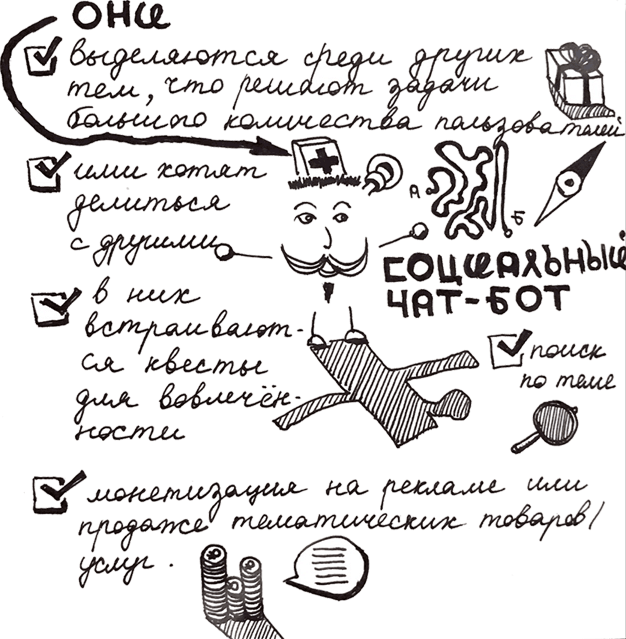 ОНИ
выделяются среди других
тем, что решают задачи
большого количества пользователей
ими хотят
делиться
с другими
А
Б
СОЦИАЛЬНЫЙ
ЧАТ-БОТ
в них
встраивают-
ся квесты
для вовлечён-
ности
поиск
по теме
монетизация на рекламе или
продаже тематических товаров/
услуг.